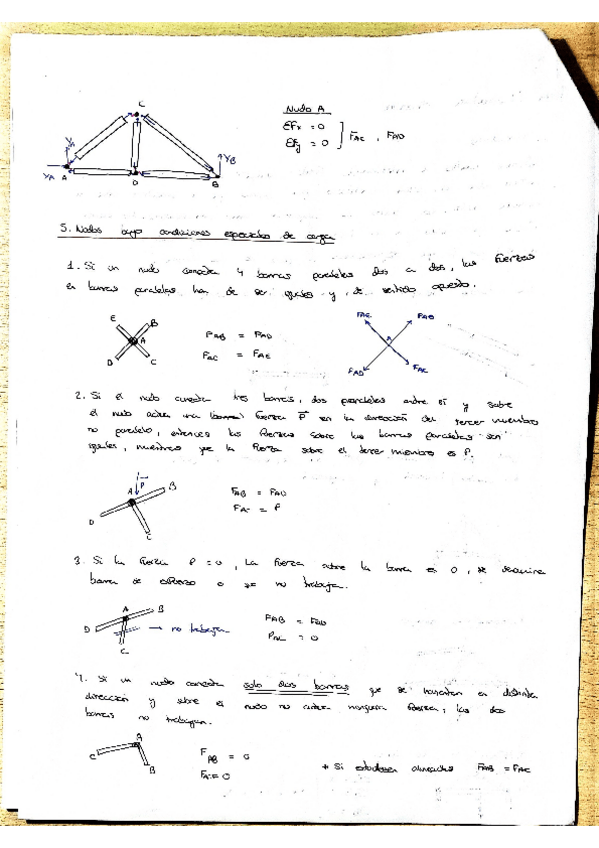 Nudo A
C
ΣFx = 0
ΣFy = 0
FAC , FAD
YA
YB
A
D
B
5. Nudos bajo condiciones especiales de carga
1. Si un nudo conecta 4 barras paralelas dos a dos, las fuerzas
en barras paralelas han de ser iguales y de sentido opuesto.
E B
A
D C
FAB = FAD
FAC = FAE
FAE FAB
A
FAD FAC
2. Si el nudo conecta tres barras, dos paralelas entre sí y sobre
el nudo actúa una fuerza P en la dirección del tercer miembro
no paralelo, entonces las fuerzas sobre las barras paralelas son
iguales, mientras que la fuerza sobre el tercer miembro es P.
P
A B
D
C
FAB = FAD
FAC = P
3. Si la fuerza P = 0, la fuerza sobre la barra es 0, se denomina
barra de esfuerzo 0 que no trabaja.
A B
D
C
→ no trabaja
FAB = FAD
FAC = 0
4. Si un nudo conecta solo dos barras que se muestran en distinta
dirección y sobre el nudo no actúa ninguna fuerza, las dos
barras no trabajan.
A
C
B
FAB = 0
FAC = 0
* Si estuviesen alineadas FAB = FAC